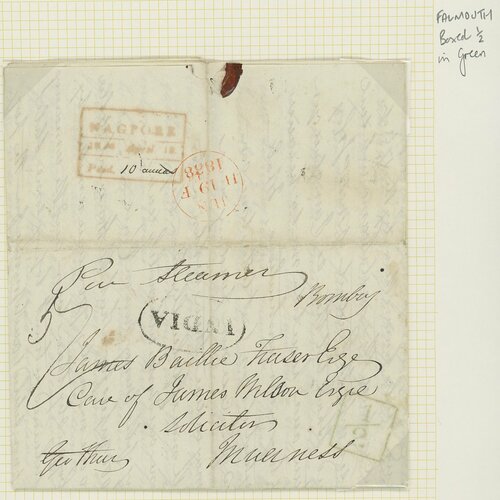 FALMOUTH
Boxed ½
in Green
NAGPORE
Paid. 10 annas
1838
Per Steamer
Bombay
INDIA
James Baillie Fraser Esqe
Care of James Wilson Esqre
Solicitor
1/2
Inverness